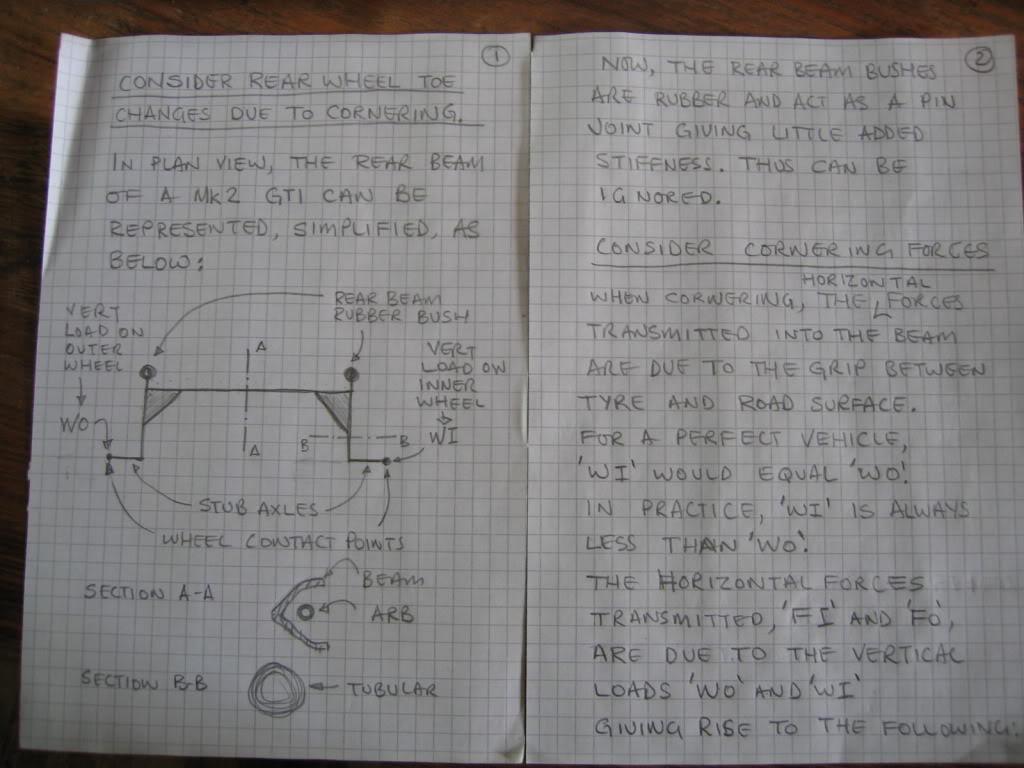 1
CONSIDER REAR WHEEL TOE
CHANGES DUE TO CORNERING.
IN PLAN VIEW, THE REAR BEAM
OF A MK2 GTI CAN BE
REPRESENTED, SIMPLIFIED, AS
BELOW:
REAR BEAM
RUBBER BUSH
VERT
LOAD ON
OUTER
WHEEL
WO
A
A
VERT
LOAD ON
INNER
WHEEL
WI
B
B
STUB AXLES
WHEEL CONTACT POINTS
SECTION A-A
BEAM
ARB
SECTION B-B
TUBULAR
2
NOW, THE REAR BEAM BUSHES
ARE RUBBER AND ACT AS A PIN
JOINT GIVING LITTLE ADDED
STIFFNESS. THUS CAN BE
IGNORED.
CONSIDER CORNERING FORCES
HORIZONTAL
WHEN CORNERING, THE FORCES
TRANSMITTED INTO THE BEAM
ARE DUE TO THE GRIP BETWEEN
TYRE AND ROAD SURFACE.
FOR A PERFECT VEHICLE,
'WI' WOULD EQUAL 'WO'.
IN PRACTICE, 'WI' IS ALWAYS
LESS THAN 'WO'.
THE HORIZONTAL FORCES
TRANSMITTED, 'FI' AND 'FO',
ARE DUE TO THE VERTICAL
LOADS 'WO' AND 'WI'
GIVING RISE TO THE FOLLOWING: